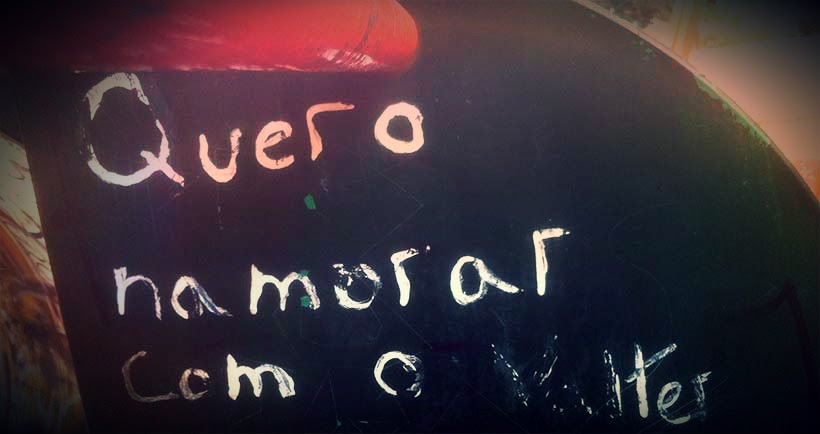 Quero
namorar
com o Walter